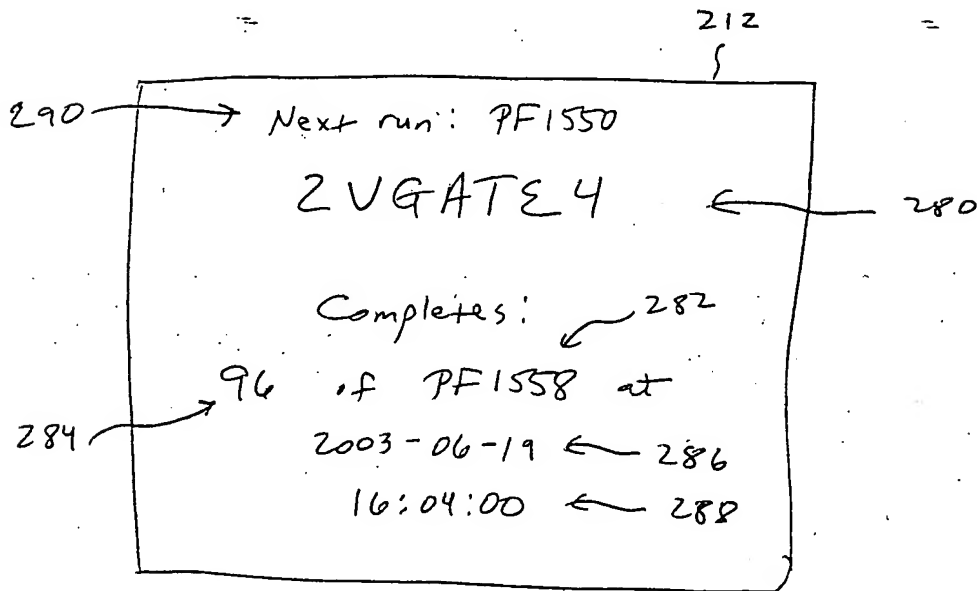 212
290 Next run: PF1550
2VGATE4 280
Completes: 282
96 of PF1558 at
284
2003-06-19 286
16:04:00 288